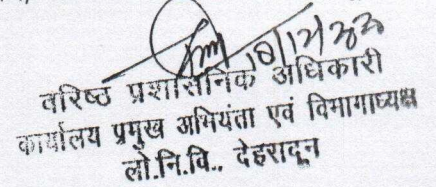 18/12/23
वरिष्ठ प्रशासनिक अधिकारी
कार्यालय प्रमुख अभियंता एवं विभागाध्यक्ष
लो.नि.वि., देहरादून